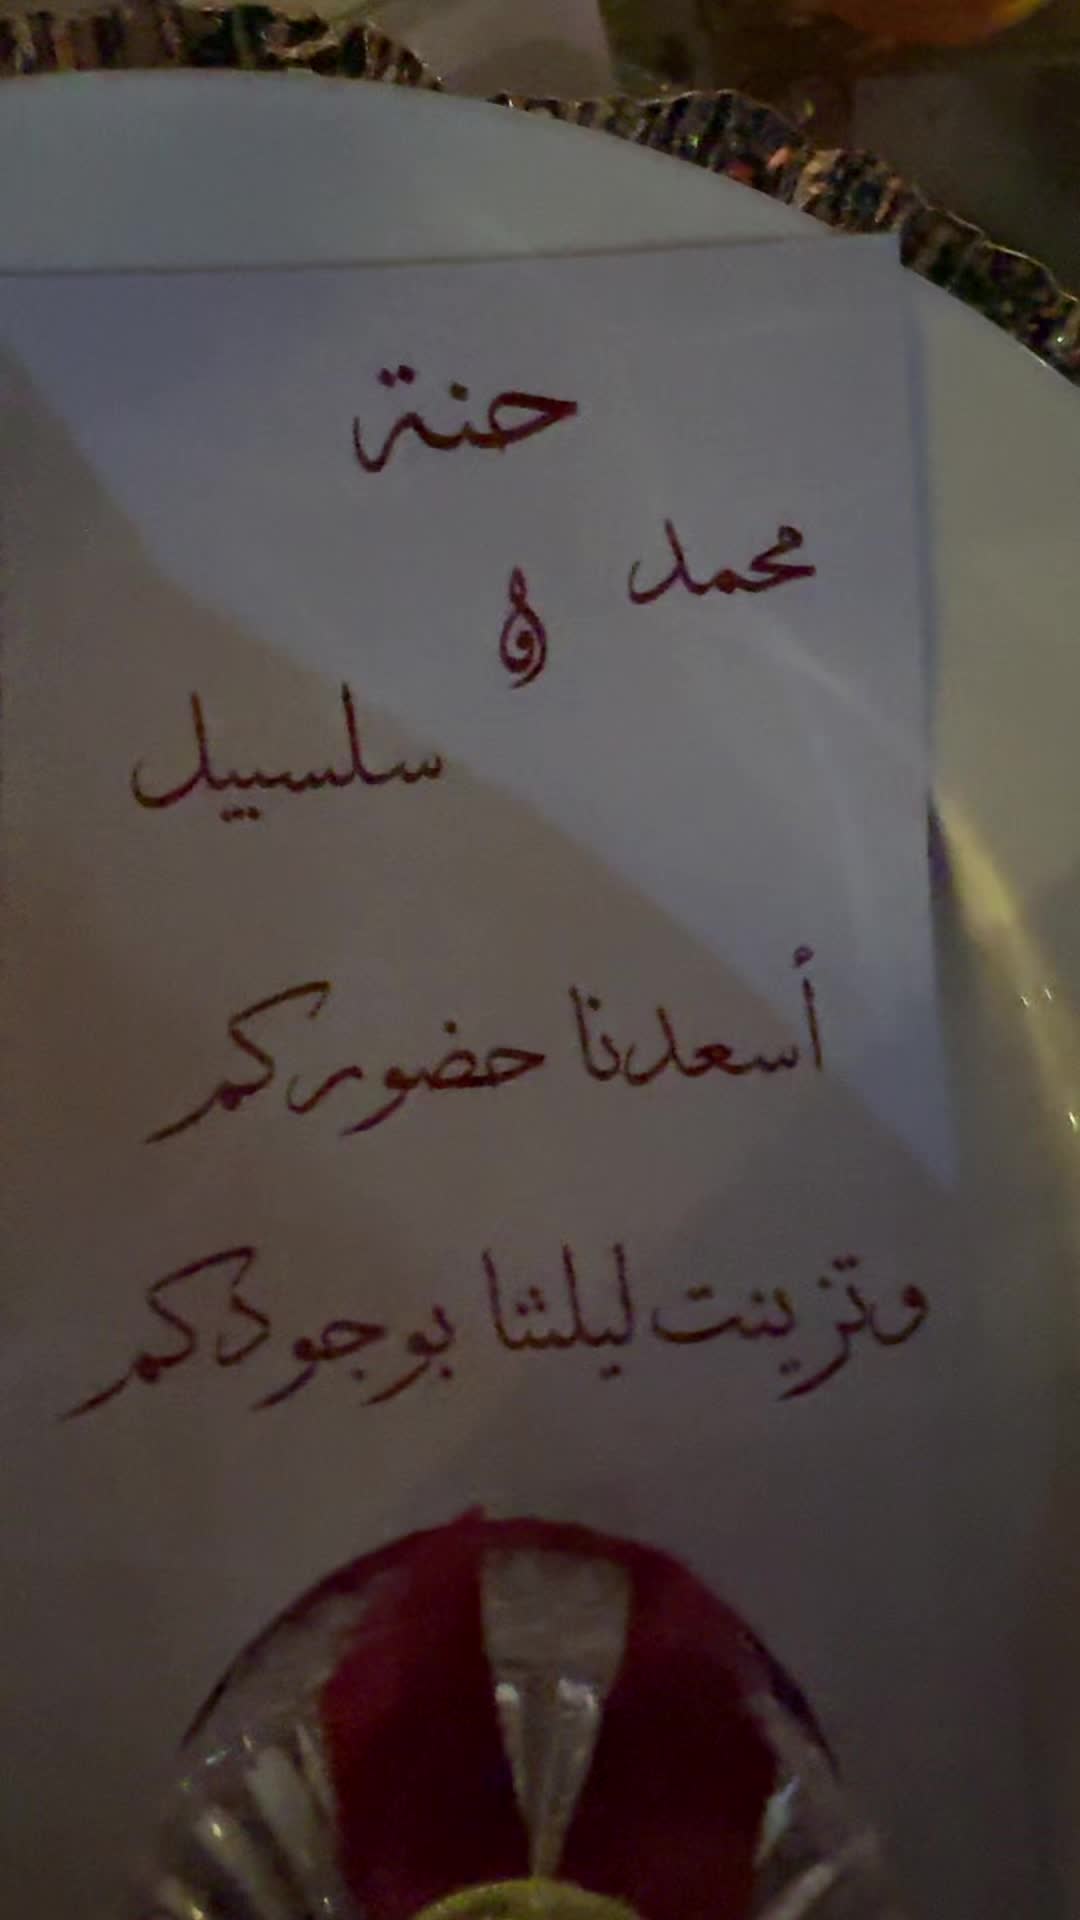 حنة
محمد
و
سلسبيل
أسعدنا حضوركم
وتزينت ليلتنا بوجودكم